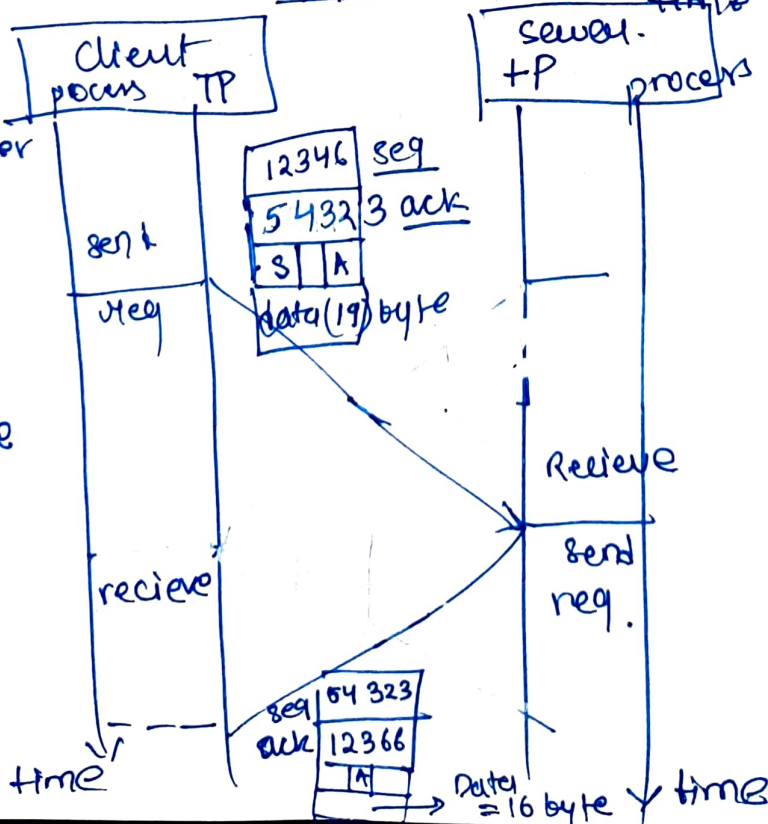 Client
pocess TP
sewer.
tP process
er
12346 seq
54323 ack
S A
data(19) byte
sent
req
e
Recieve
send
req.
recieve
seq 54 323
ack 12366
A
Data
= 16 byte
time
time